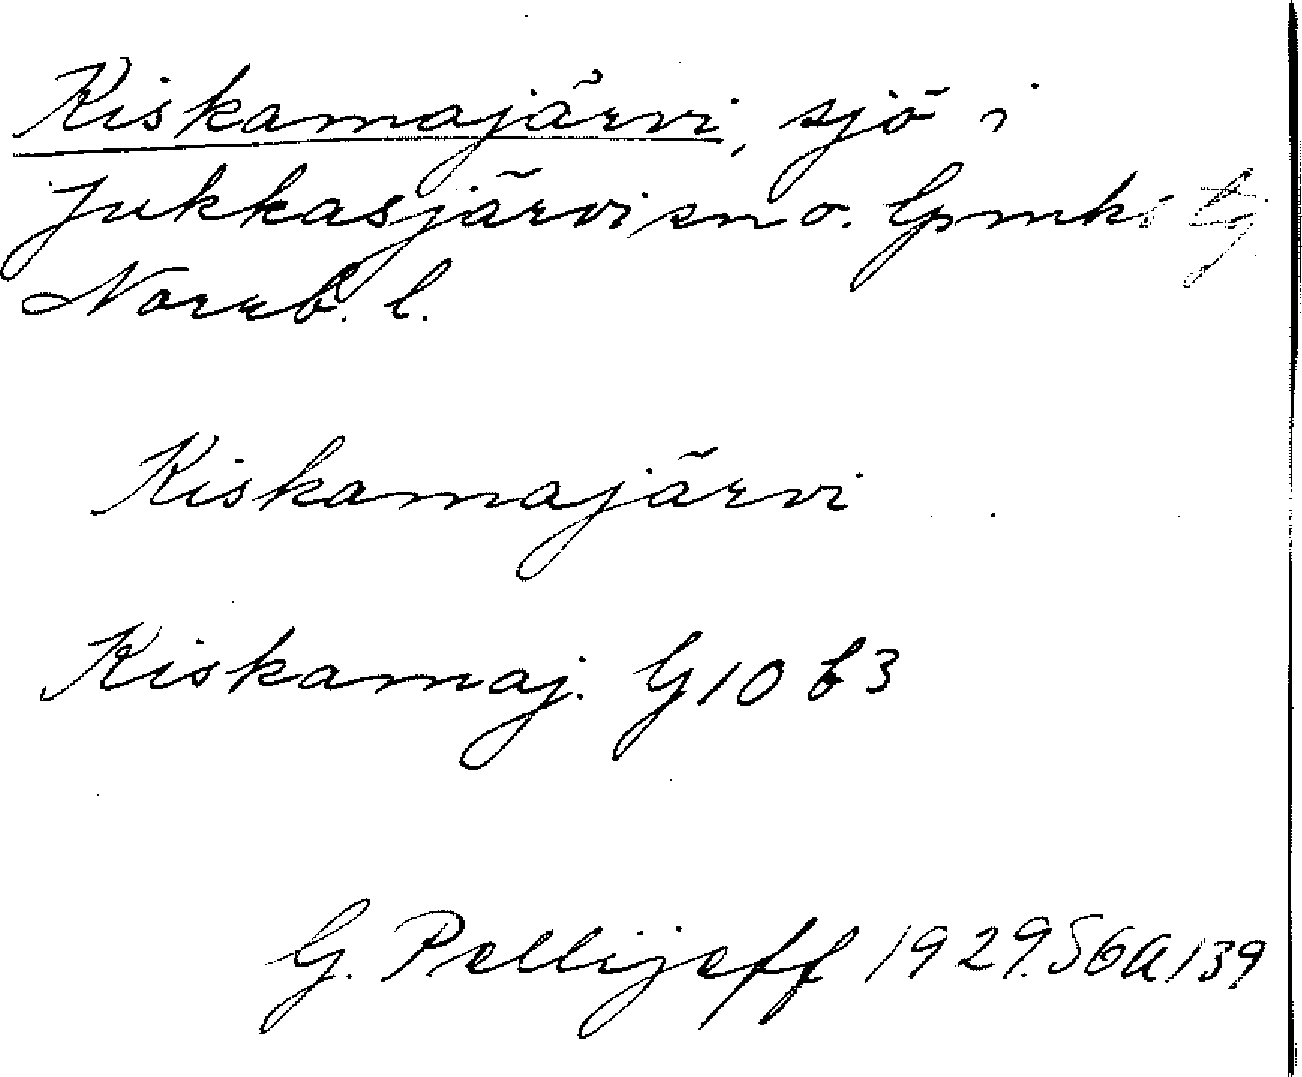 Kiskamajärvi, sjö i
Jukkasjärvi sn o. Gpmks tg
Norrb. l.
Kiskamajärvi
Kiskamaj. G10 b3
G. Pellijeff 1929. S6a139